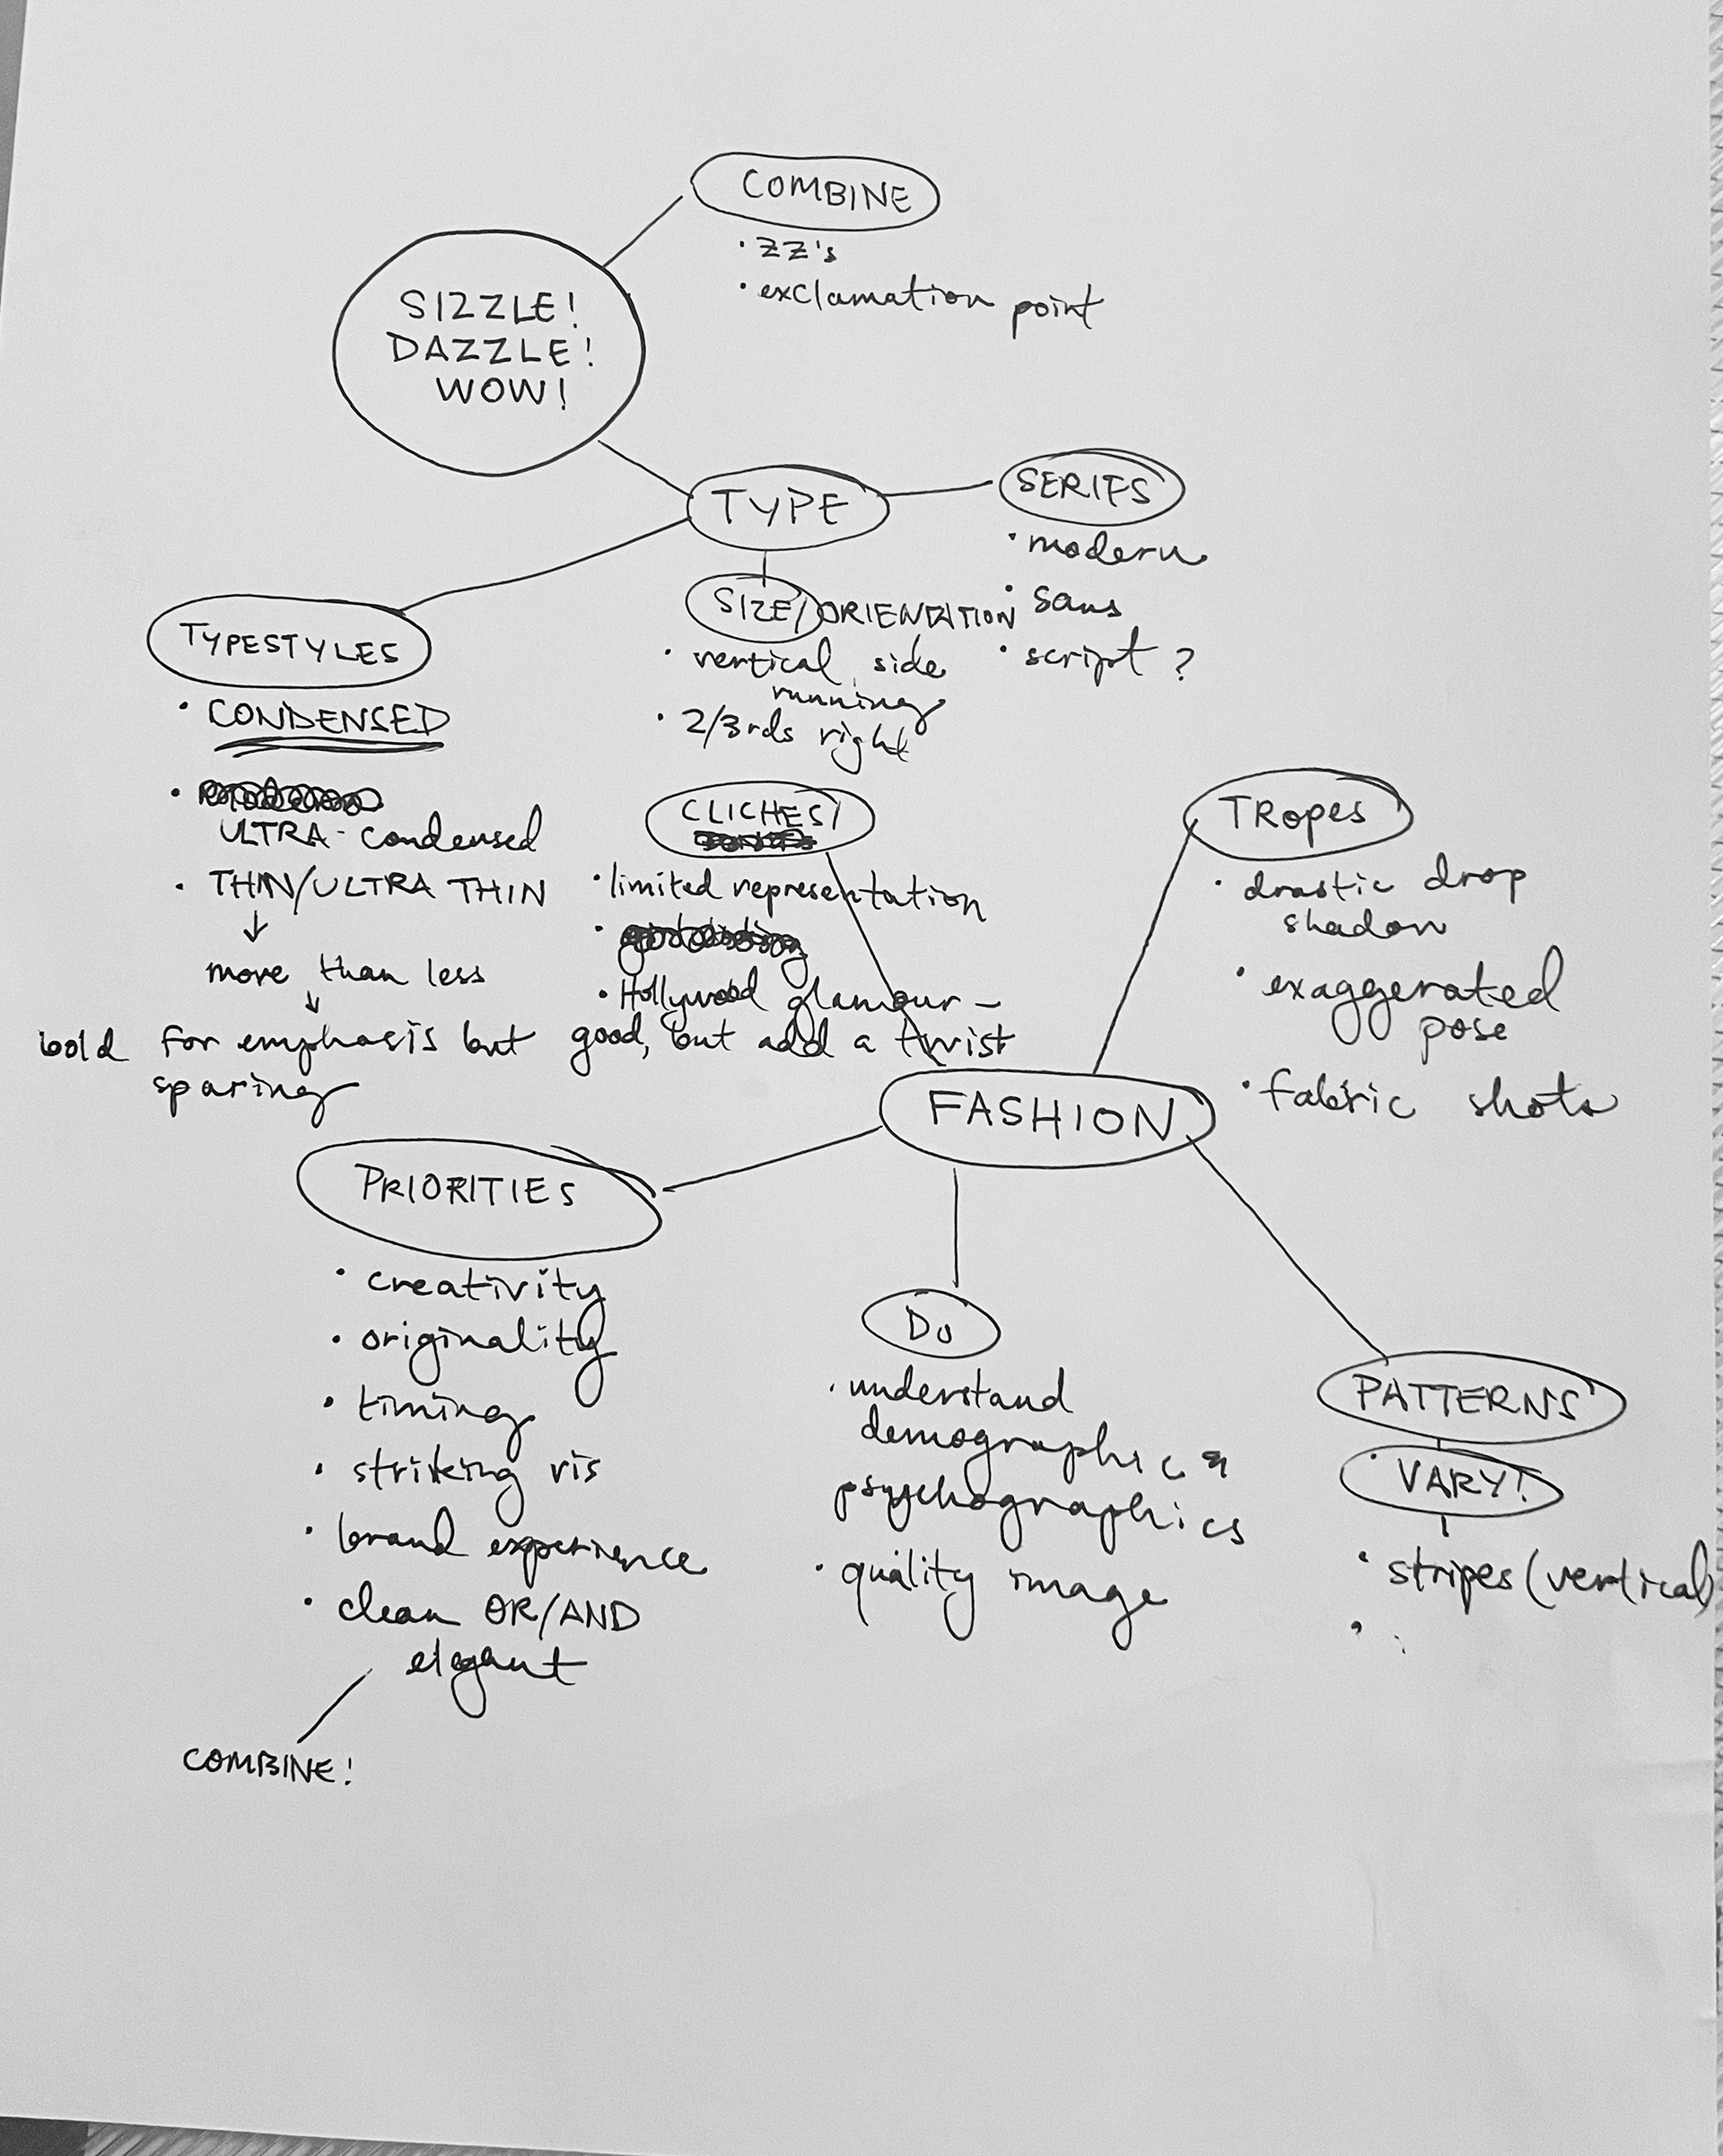 COMBINE
• ZZ's
• exclamation point
SIZZLE!
DAZZLE!
WOW!
TYPE
SERIFS
• modern
• sans
• script ?
SIZE/ORIENTATION
• vertical side
running
• 2/3rds right
TYPESTYLES
• CONDENSED
•
ULTRA-condensed
• THIN/ULTRA THIN
↓
more than less
↓
bold for emphasis but
sparing
CLICHES/
• limited representation
•
• Hollywood glamour –
good, but add a twist
TROPES
• drastic drop
shadow
• exaggerated
pose
• fabric shots
FASHION
PRIORITIES
• creativity
• originality
• timing
• striking vis
• brand experience
• clean OR/AND
elegant
COMBINE!
Do
• understand
demographic &
psychographics
• quality image
PATTERNS
• VARY!
• stripes (vertical)
•